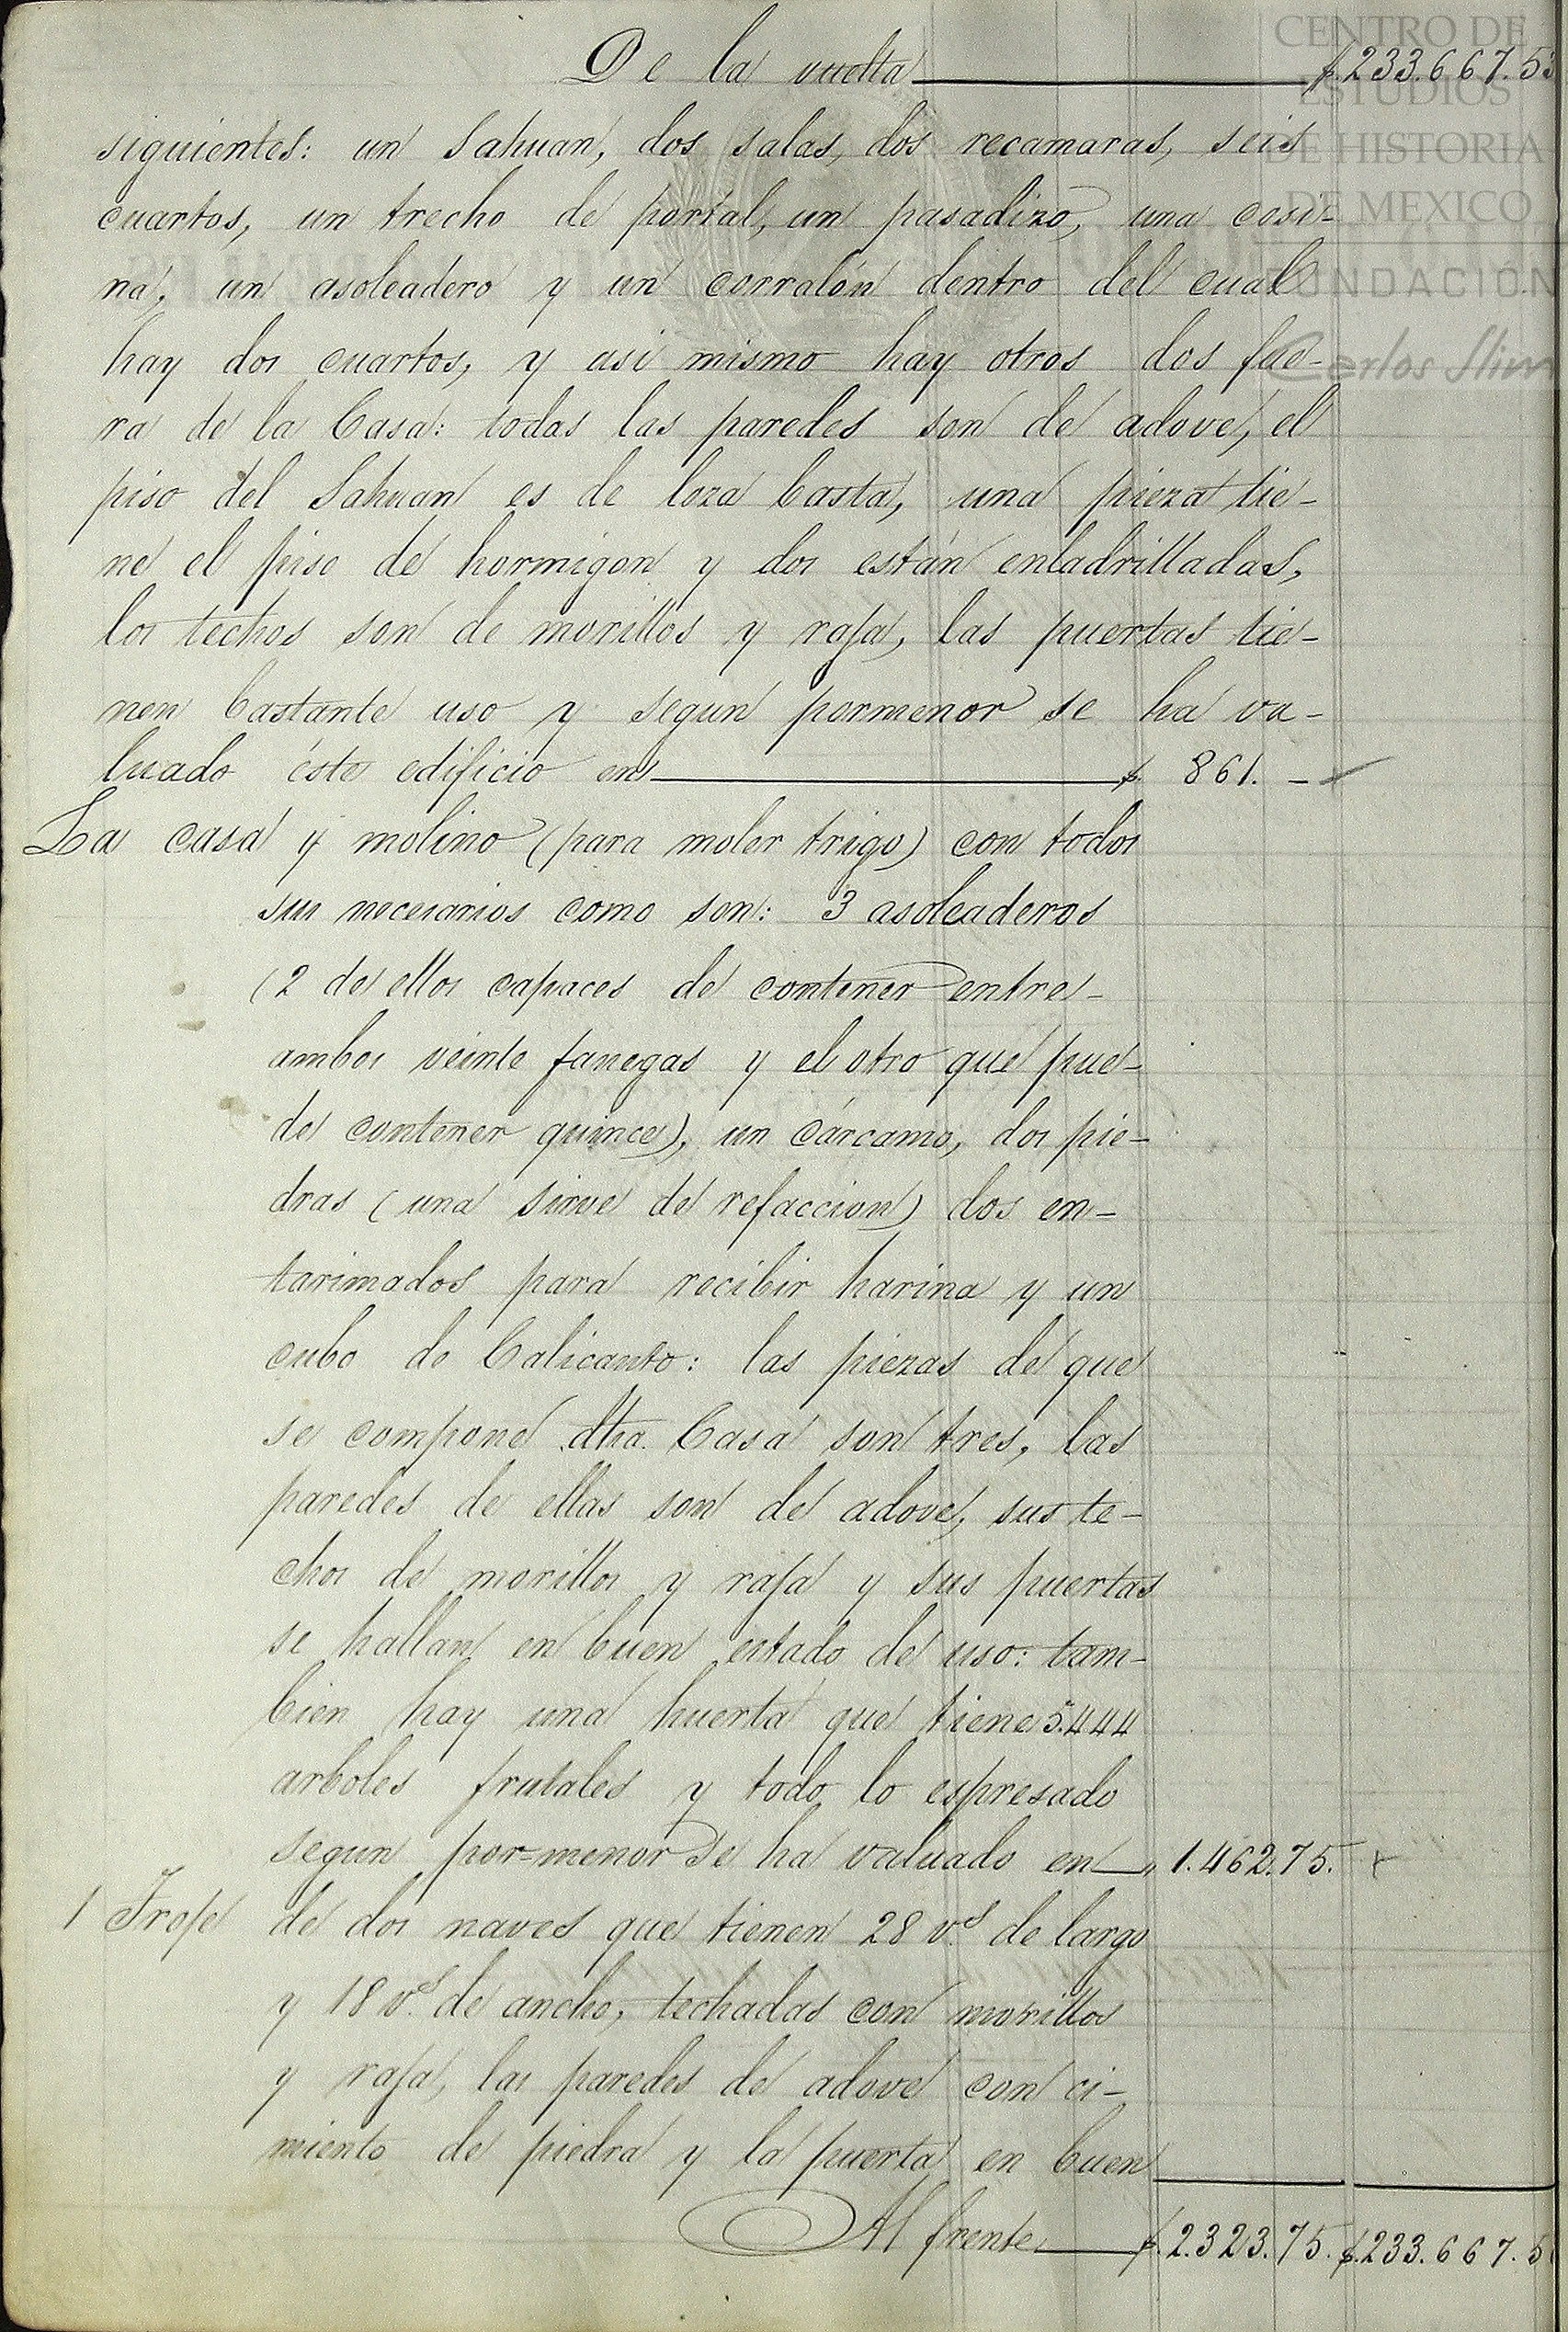 De la vuelta $.233.667.53
siguientes: un Sahuan, dos salas, dos recamaras, seis
cuartos, un trecho de portal, un pasadizo, una cosi-
na, un asoleadero y un corralón dentro del cual
hay dos cuartos, y asi mismo hay otros dos fue-
ra de la Casa: todas las paredes son de adove, el
piso del Sahuan es de loza basta, una pieza tie-
ne el piso de hormigon y dos están enladrilladas,
los techos son de morillos y raja, las puertas tie-
nen bastante uso y segun pormenor se ha va-
luado éste edificio en $. 861. -
La casa y molino (para moler trigo) con todos
sus necesarios como son: 3 asoleaderos
(2 de ellos capaces de contener entre-
ambos veinte fanegas y el otro que pue-
de contener quince), un cárcamo, dos pie-
dras (una sirve de refaccion) dos en-
tarimados para recibir harina y un
cubo de Calicanto: las piezas de que
se compone dha. Casa son tres, las
paredes de ellas son de adove, sus te-
chos de morillos y raja y sus puertas
se hallan en buen estado de uso: tam-
bien hay una huerta que tiene 5.444
arboles frutales y todo lo espresado
segun por=menor se ha valuado en „ 1.462.75.
1 Troje de dos naves que tienen 28 v.s de largo
y 18 v.s de ancho, techadas con morillos
y raja, las paredes de adove con ci-
miento de piedra y la puerta en buen
Al frente $.2.323.75. $.233.667.5
CENTRO DE
ESTUDIOS
DE HISTORIA
DE MEXICO
FUNDACIÓN
Carlos Slim